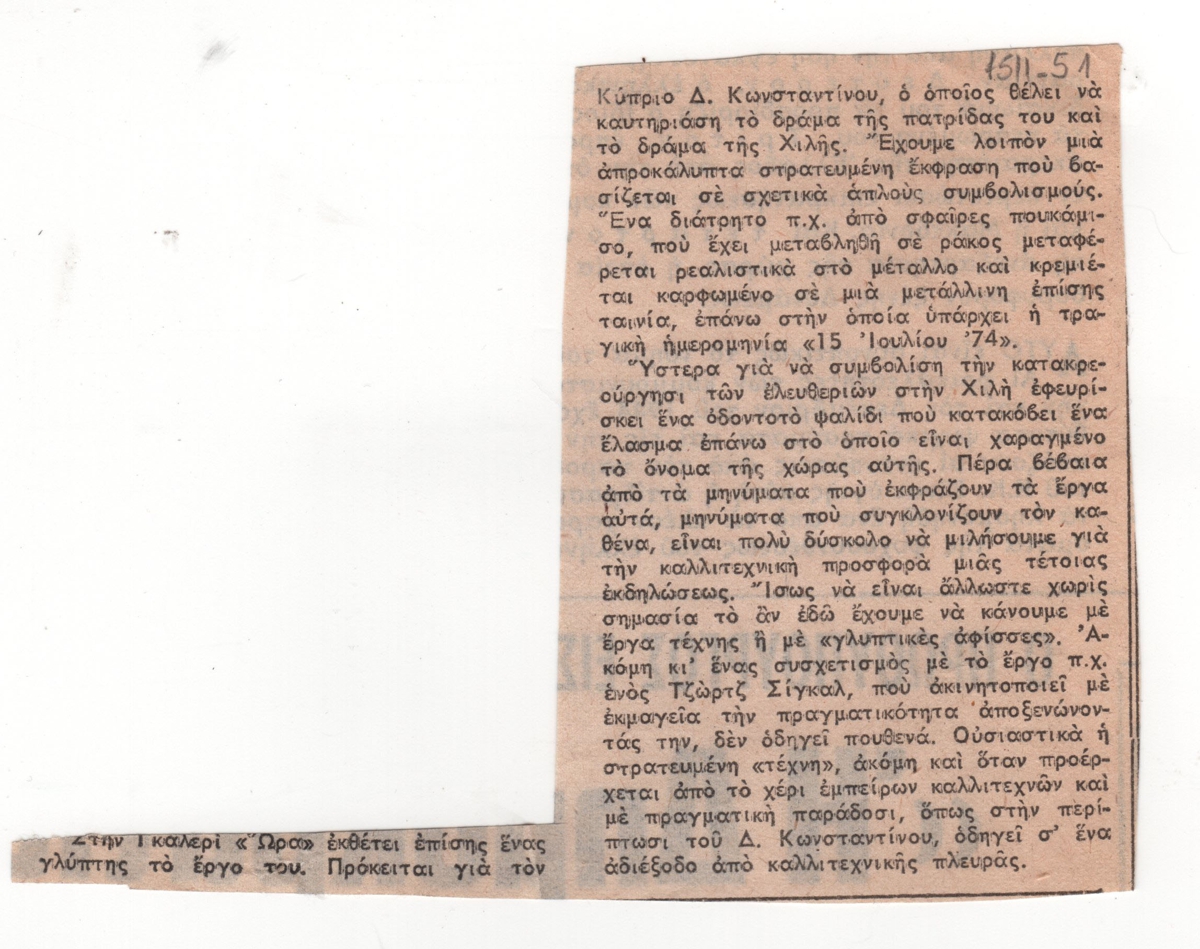 Στὴν Γκαλερὶ «Ὥρα» ἐκθέτει ἐπίσης ἕνας
γλύπτης τὸ ἔργο του. Πρόκειται γιὰ τὸν
Κύπριο Δ. Κωνσταντίνου, ὁ ὁποῖος θέλει νὰ
καυτηριάση τὸ δράμα τῆς πατρίδας του καὶ
τὸ δράμα τῆς Χιλῆς. Ἔχουμε λοιπὸν μιὰ
ἀπροκάλυπτα στρατευμένη ἔκφραση ποὺ βα-
σίζεται σὲ σχετικὰ ἁπλοὺς συμβολισμούς.
Ἕνα διάτρητο π.χ. ἀπὸ σφαῖρες πουκάμι-
σο, ποὺ ἔχει μεταβληθῆ σὲ ράκος μεταφέ-
ρεται ρεαλιστικὰ στὸ μέταλλο καὶ κρεμιέ-
ται καρφωμένο σὲ μιὰ μετάλλινη ἐπίσης
ταινία, ἐπάνω στὴν ὁποία ὑπάρχει ἡ τρα-
γικὴ ἡμερομηνία «15 Ἰουλίου '74».
Ὕστερα γιὰ νὰ συμβολίση τὴν κατακρε-
ούργησι τῶν ἐλευθεριῶν στὴν Χιλὴ ἐφευρί-
σκει ἕνα ὀδοντοτὸ ψαλίδι ποὺ κατακόβει ἕνα
ἔλασμα ἐπάνω στὸ ὁποῖο εἶναι χαραγμένο
τὸ ὄνομα τῆς χώρας αὐτῆς. Πέρα βέβαια
ἀπὸ τὰ μηνύματα ποὺ ἐκφράζουν τὰ ἔργα
αὐτά, μηνύματα ποὺ συγκλονίζουν τὸν κα-
θένα, εἶναι πολὺ δύσκολο νὰ μιλήσουμε γιὰ
τὴν καλλιτεχνικὴ προσφορὰ μιᾶς τέτοιας
ἐκδηλώσεως. Ἴσως νὰ εἶναι ἄλλωστε χωρὶς
σημασία τὸ ἂν ἐδῶ ἔχουμε νὰ κάνουμε μὲ
ἔργα τέχνης ἢ μὲ «γλυπτικὲς ἀφίσσες». Ἀ-
κόμη κι' ἕνας συσχετισμὸς μὲ τὸ ἔργο π.χ.
ἑνὸς Τζὼρτζ Σίγκαλ, ποὺ ἀκινητοποιεῖ μὲ
ἐκμαγεῖα τὴν πραγματικότητα ἀποξενώνον-
τάς την, δὲν ὁδηγεῖ πουθενά. Οὐσιαστικὰ ἡ
στρατευμένη «τέχνη», ἀκόμη καὶ ὅταν προέρ-
χεται ἀπὸ τὸ χέρι ἐμπείρων καλλιτεχνῶν καὶ
μὲ πραγματικὴ παράδοσι, ὅπως στὴν περί-
πτωσι τοῦ Δ. Κωνσταντίνου, ὁδηγεῖ σ' ἕνα
ἀδιέξοδο ἀπὸ καλλιτεχνικῆς πλευρᾶς.